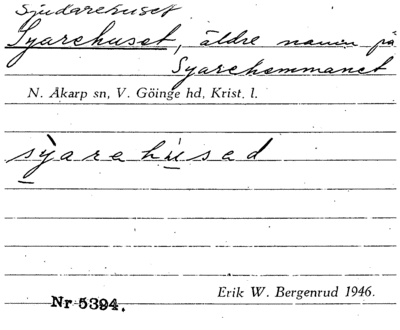 Sjudarehuset
Syarehuset, äldre namn på
Syarehemmanet
N. Åkarp sn, V. Göinge hd, Krist. l.
sỳarehu̠sad
Erik W. Bergenrud 1946.
Nr 5394.